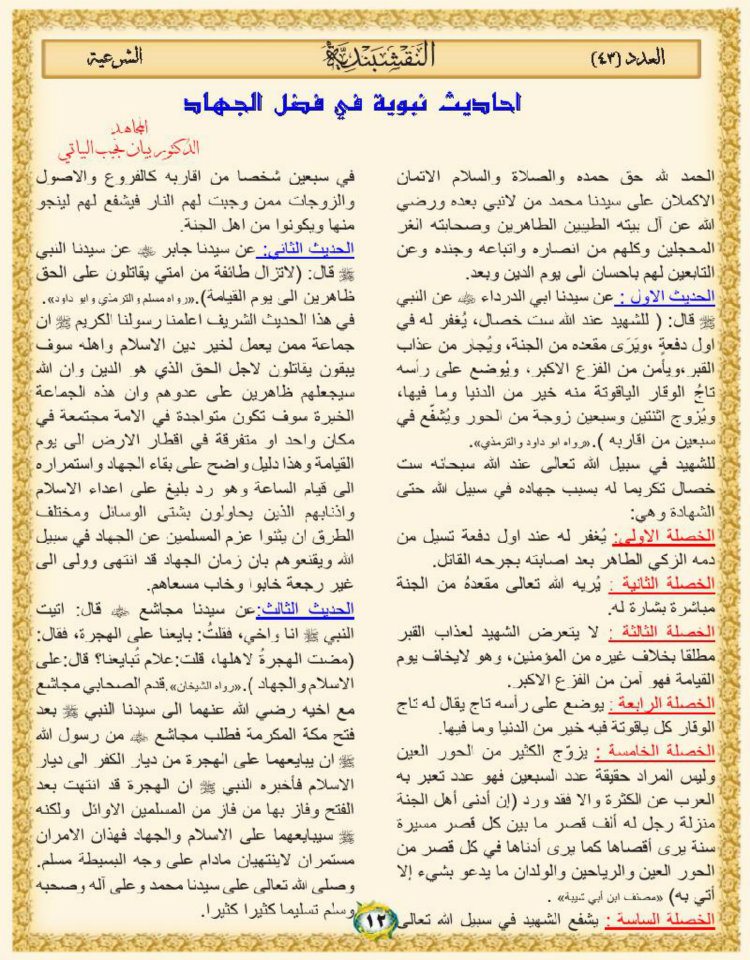 العدد (٤٣)
النقشبندية
الشرعية
احاديث نبوية في فضل الجهاد
المجاهد
الدكتور بيان نجيب الياتي
الحمد لله حق حمده والصلاة والسلام الاتمان
الاكملان على سيدنا محمد من لانبي بعده ورضي
الله عن آل بيته الطيبين الطاهرين وصحابته الغر
المحجلين وكلهم من انصاره واتباعه وجنده وعن
التابعين لهم باحسان الى يوم الدين وبعد.
الحديث الاول : عن سيدنا ابي الدرداء ﵁ عن النبي
ﷺ قال: ( للشهيد عند الله ست خصال، يُغفر له في
اول دفعةٍ ،ويَرَى مقعده من الجنة، ويُجار من عذاب
القبر،ويأمن من الفزع الاكبر، ويُوضع على رأسه
تاجُ الوقار الياقوتة منه خير من الدنيا وما فيها،
ويُزوج اثنتين وسبعين زوجة من الحور ويُشفّع في
سبعين من اقاربه ).«رواه ابو داود والترمذي».
للشهيد في سبيل الله تعالى عند الله سبحانه ست
خصال تكريما له بسبب جهاده في سبيل الله حتى
الشهادة وهي:
الخصلة الاولى: يُغفر له عند اول دفعة تسيل من
دمه الزكي الطاهر بعد اصابته بجرحه القاتل.
الخصلة الثانية : يُريه الله تعالى مقعدهُ من الجنة
مباشرة بشارة له.
الخصلة الثالثة : لا يتعرض الشهيد لعذاب القبر
مطلقا بخلاف غيره من المؤمنين، وهو لايخاف يوم
القيامة فهو آمن من الفزع الاكبر.
الخصلة الرابعة : يوضع على رأسه تاج يقال له تاج
الوقار كل ياقوتة فيه خير من الدنيا وما فيها.
الخصلة الخامسة : يزوّج الكثير من الحور العين
وليس المراد حقيقة عدد السبعين فهو عدد تعبر به
العرب عن الكثرة والا فقد ورد (إن أدنى أهل الجنة
منزلة رجل له ألف قصر ما بين كل قصر مسيرة
سنة يرى أقصاها كما يرى أدناها في كل قصر من
الحور العين والرياحين والولدان ما يدعو بشيء إلا
أتي به) «مصنف ابن أبي شيبة» .
الخصلة الساسة : يشفع الشهيد في سبيل الله تعالى
في سبعين شخصا من اقاربه كالفروع والاصول
والزوجات ممن وجبت لهم النار فيشفع لهم لينجو
منها ويكونوا من اهل الجنة.
الحديث الثاني: عن سيدنا جابر ﵁ عن سيدنا النبي
ﷺ قال: (لاتزال طائفة من امتي يقاتلون على الحق
ظاهرين الى يوم القيامة).«رواه مسلم والترمذي وابو داود».
في هذا الحديث الشريف اعلمنا رسولنا الكريم ﷺ ان
جماعة ممن يعمل لخير دين الاسلام واهله سوف
يبقون يقاتلون لاجل الحق الذي هو الدين وان الله
سيجعلهم ظاهرين على عدوهم وان هذه الجماعة
الخيرة سوف تكون متواجدة في الامة مجتمعة في
مكان واحد او متفرقة في اقطار الارض الى يوم
القيامة وهذا دليل واضح على بقاء الجهاد واستمراره
الى قيام الساعة وهو رد بليغ على اعداء الاسلام
واذنابهم الذين يحاولون بشتى الوسائل ومختلف
الطرق ان يثنوا عزم المسلمين عن الجهاد في سبيل
الله ويقنعوهم بان زمان الجهاد قد انتهى وولى الى
غير رجعة خابوا وخاب مسعاهم.
الحديث الثالث:عن سيدنا مجاشع ﵁ قال: اتيت
النبي ﷺ انا واخي، فقلتُ: بايعنا على الهجرة، فقال:
(مضت الهجرةُ لاهلها، قلت:علام تُبايعنا؟ قال:على
الاسلام والجهاد ).«رواه الشيخان».قدم الصحابي مجاشع
مع اخيه رضي الله عنهما الى سيدنا النبي ﷺ بعد
فتح مكة المكرمة فطلب مجاشع ﵁ من رسول الله
ﷺ ان يبايعهما على الهجرة من ديار الكفر الى ديار
الاسلام فأخبره النبي ﷺ ان الهجرة قد انتهت بعد
الفتح وفاز بها من فاز من المسلمين الاوائل ولكنه
ﷺ سيبايعهما على الاسلام والجهاد فهذان الامران
مستمران لاينتهيان مادام على وجه البسيطة مسلم.
وصلى الله تعالى على سيدنا محمد وعلى آله وصحبه
وسلم تسليما كثيرا كثيرا.
١٢